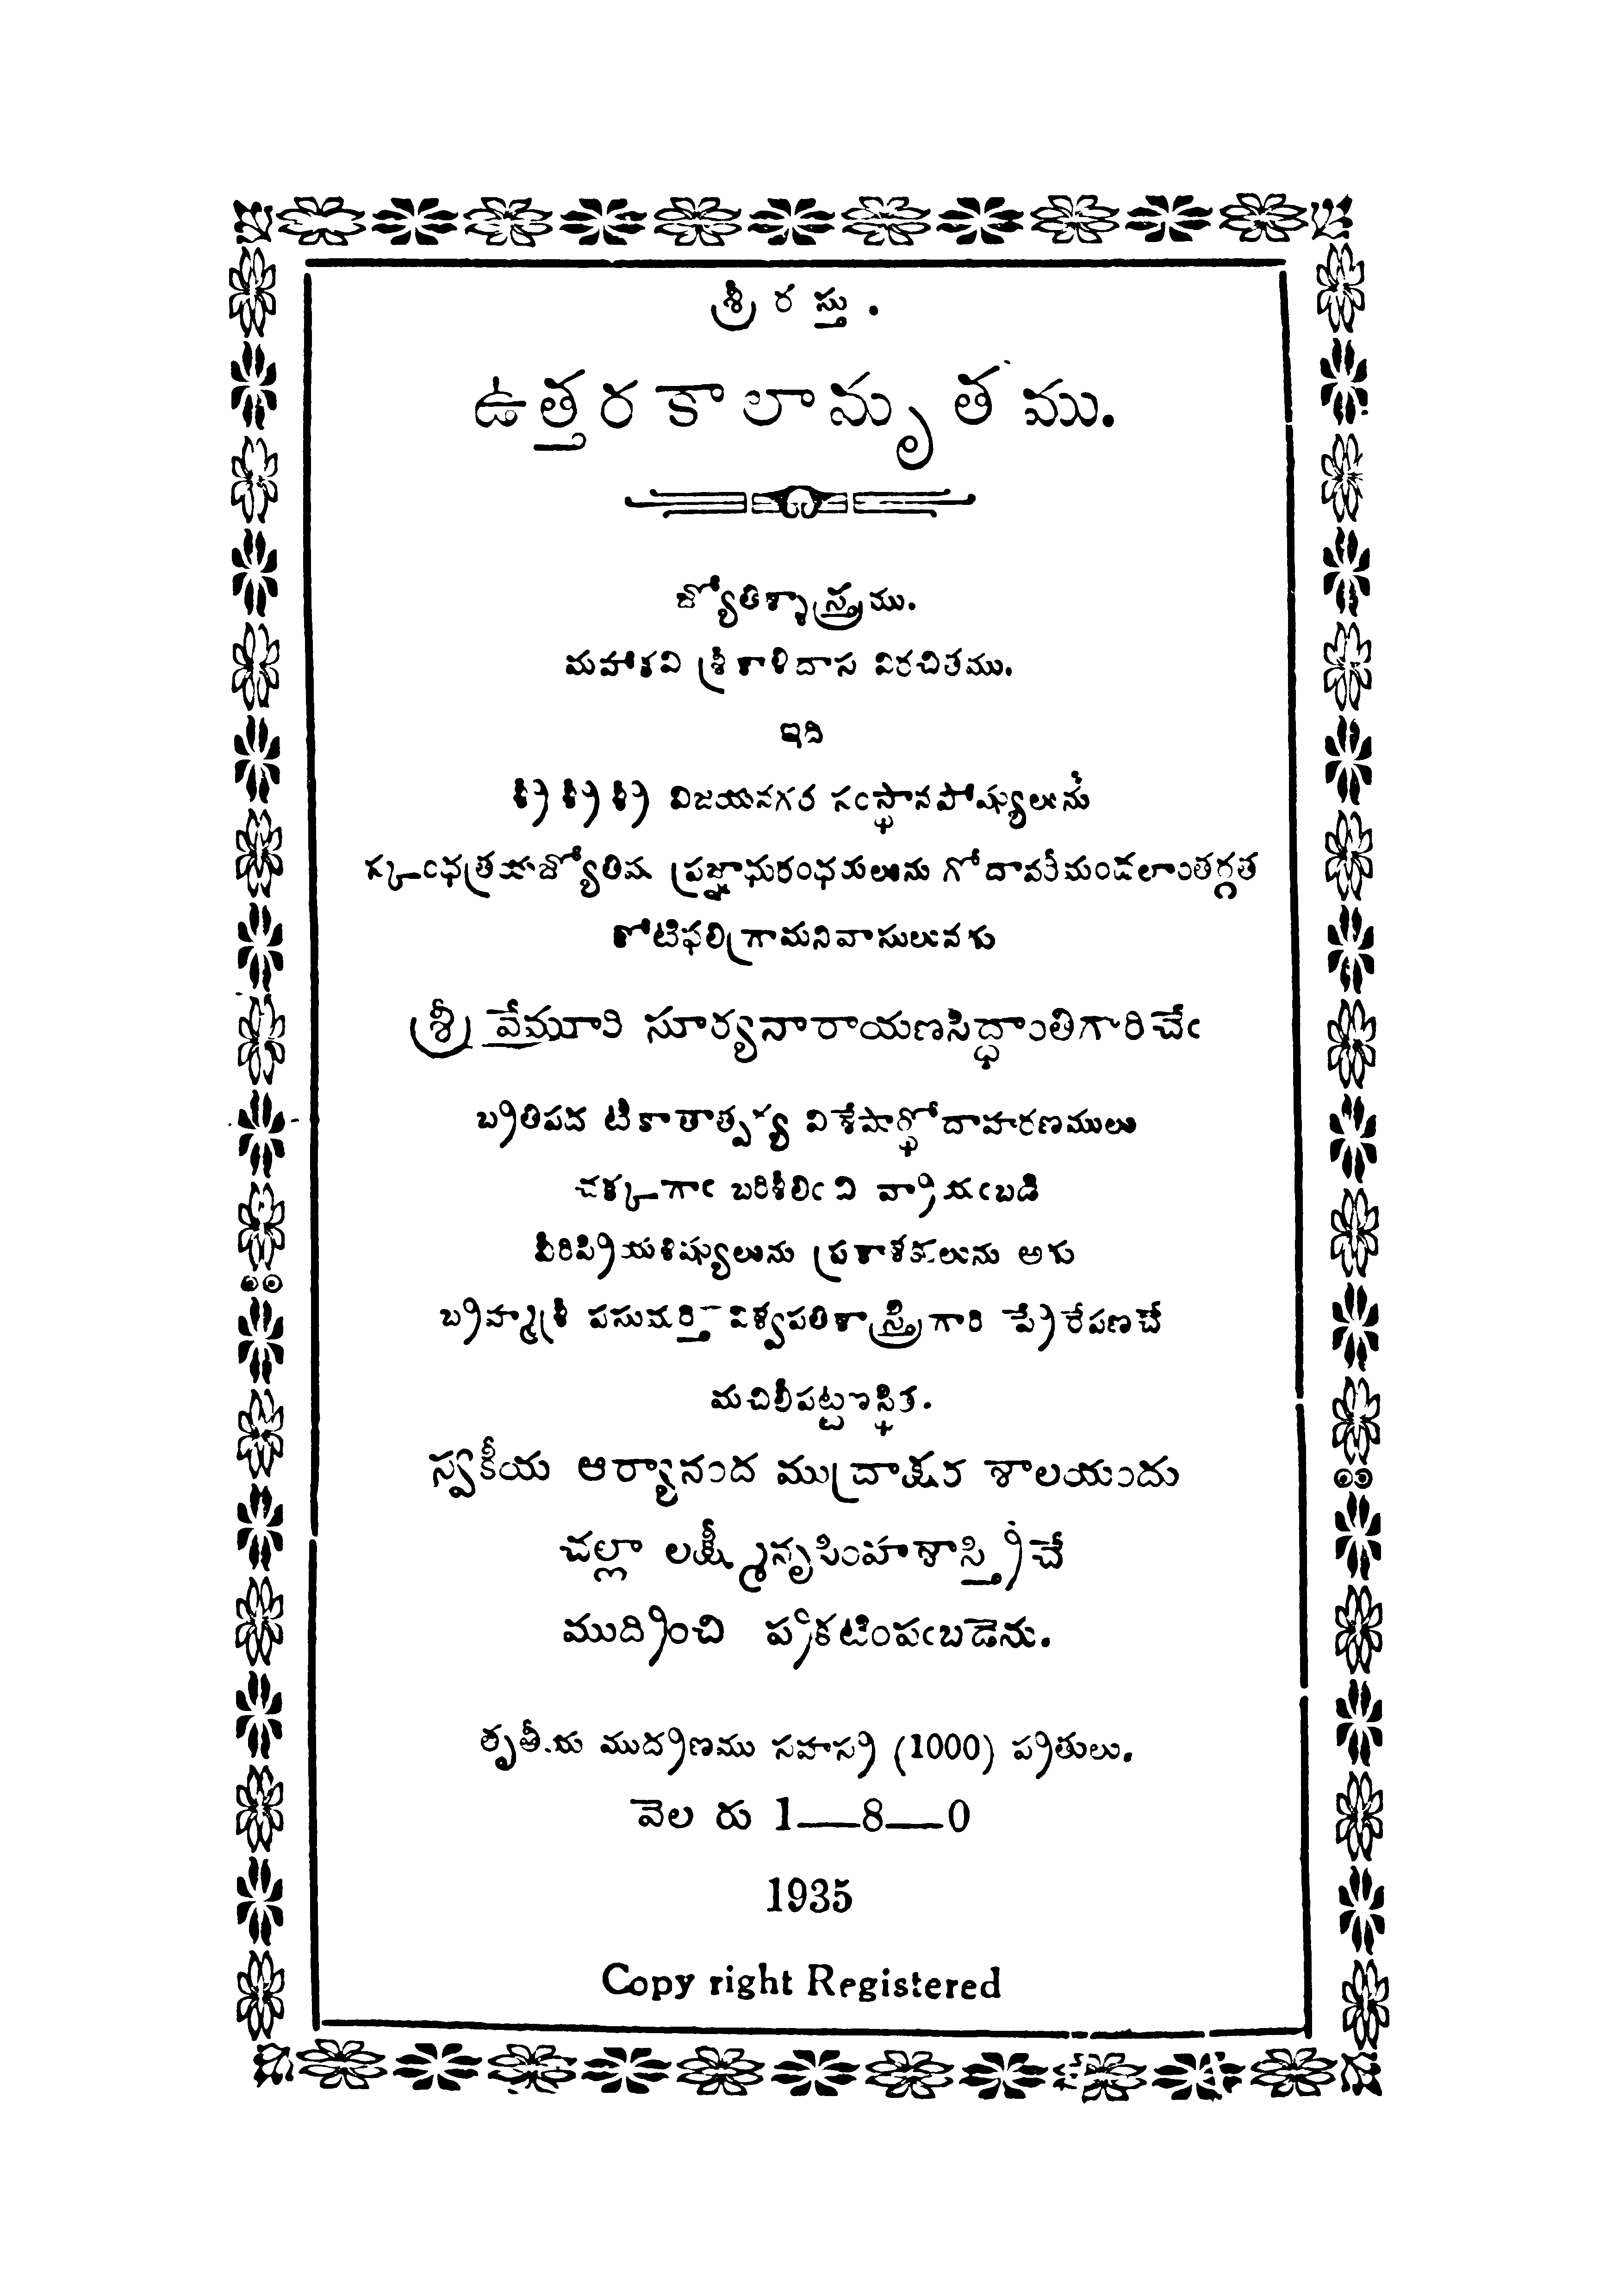 శ్రీ ర స్తు .
ఉత్తరకాలామృతము.
జ్యోతిశ్శాస్త్రము.
మహాకవి శ్రీకాళిదాస విరచితము.
ఇది
శ్రీ శ్రీ శ్రీ విజయనగర సంస్థానపోష్యులును
స్కంధత్రయజ్యోతిష ప్రజ్ఞాధురంధరులును గోదావరీమండలాంతర్గత
కోటిఫలిగ్రామనివాసులునగు
శ్రీ వేమూరి సూర్యనారాయణసిద్ధాంతిగారిచేఁ
బ్రతిపద టీకాతాత్పర్య విశేషార్థోదాహరణములు
చక్కగాఁ బరిశీలిఁచి వ్రాయఁబడి
వీరిప్రియశిష్యులును ప్రకాశకులును అగు
బ్రహ్మశ్రీ పసుమర్తి విశ్వపతిశాస్త్రిగారి ప్రేరేపణచే
మచిలీపట్టణస్థిత.
స్వకీయ ఆర్యానంద ముద్రాక్షర శాలయందు
చల్లా లక్ష్మీనృసింహశాస్త్రిచే
ముద్రించి ప్రకటింపఁబడెను.
తృతీయ ముద్రణము సహస్ర (1000) ప్రతులు.
వెల రు 1—8—0
1935
Copy right Registered